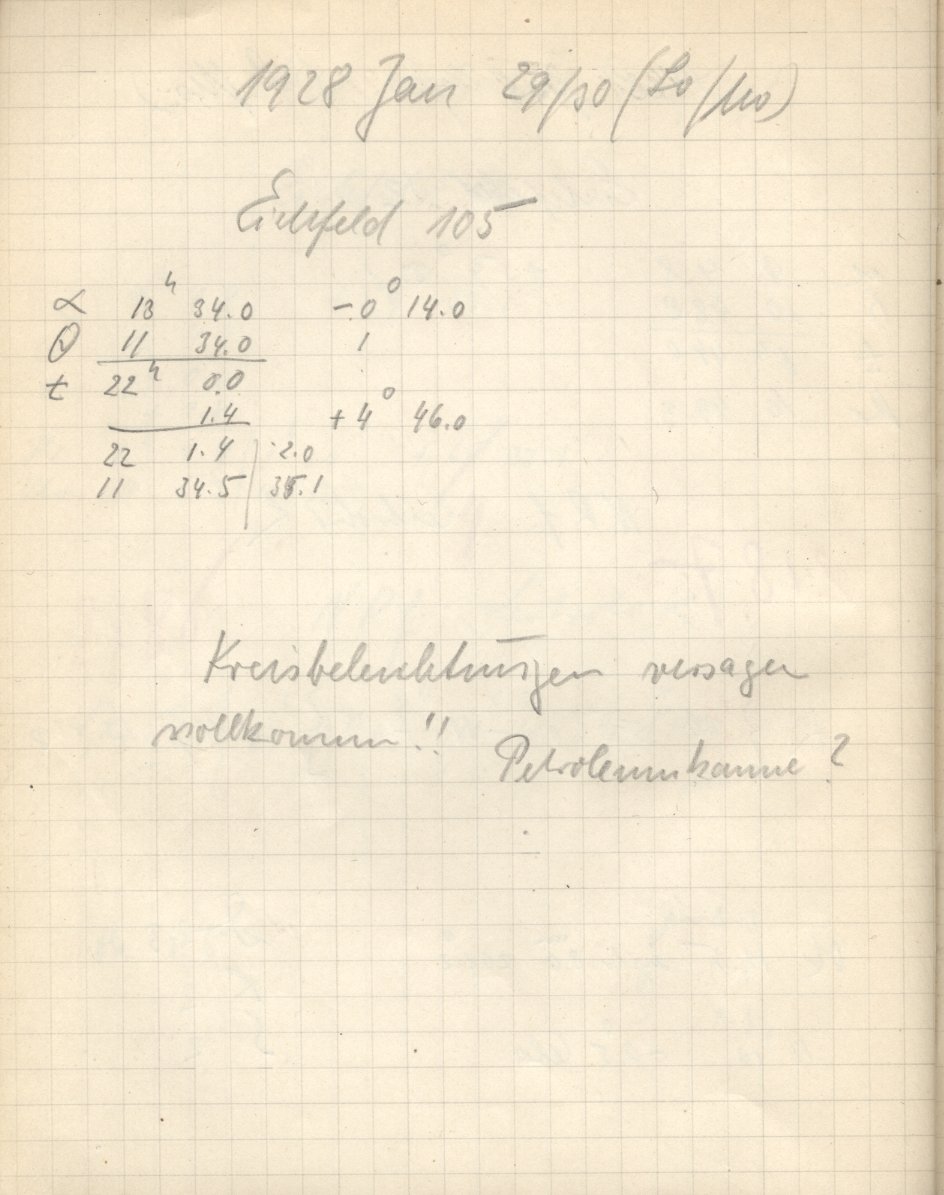 1928 Jan 29/30 (So/Mo)
Eichfeld 105
α 13ʰ 34.0 -0° 14.0
θ 11 34.0 1
t 22ʰ 0.0
1.4 +4° 46.0
22 1.4 2.0
11 34.5 35.1
Kreisbeleuchtungen versagen
vollkommen!!
Petroleumkanne?